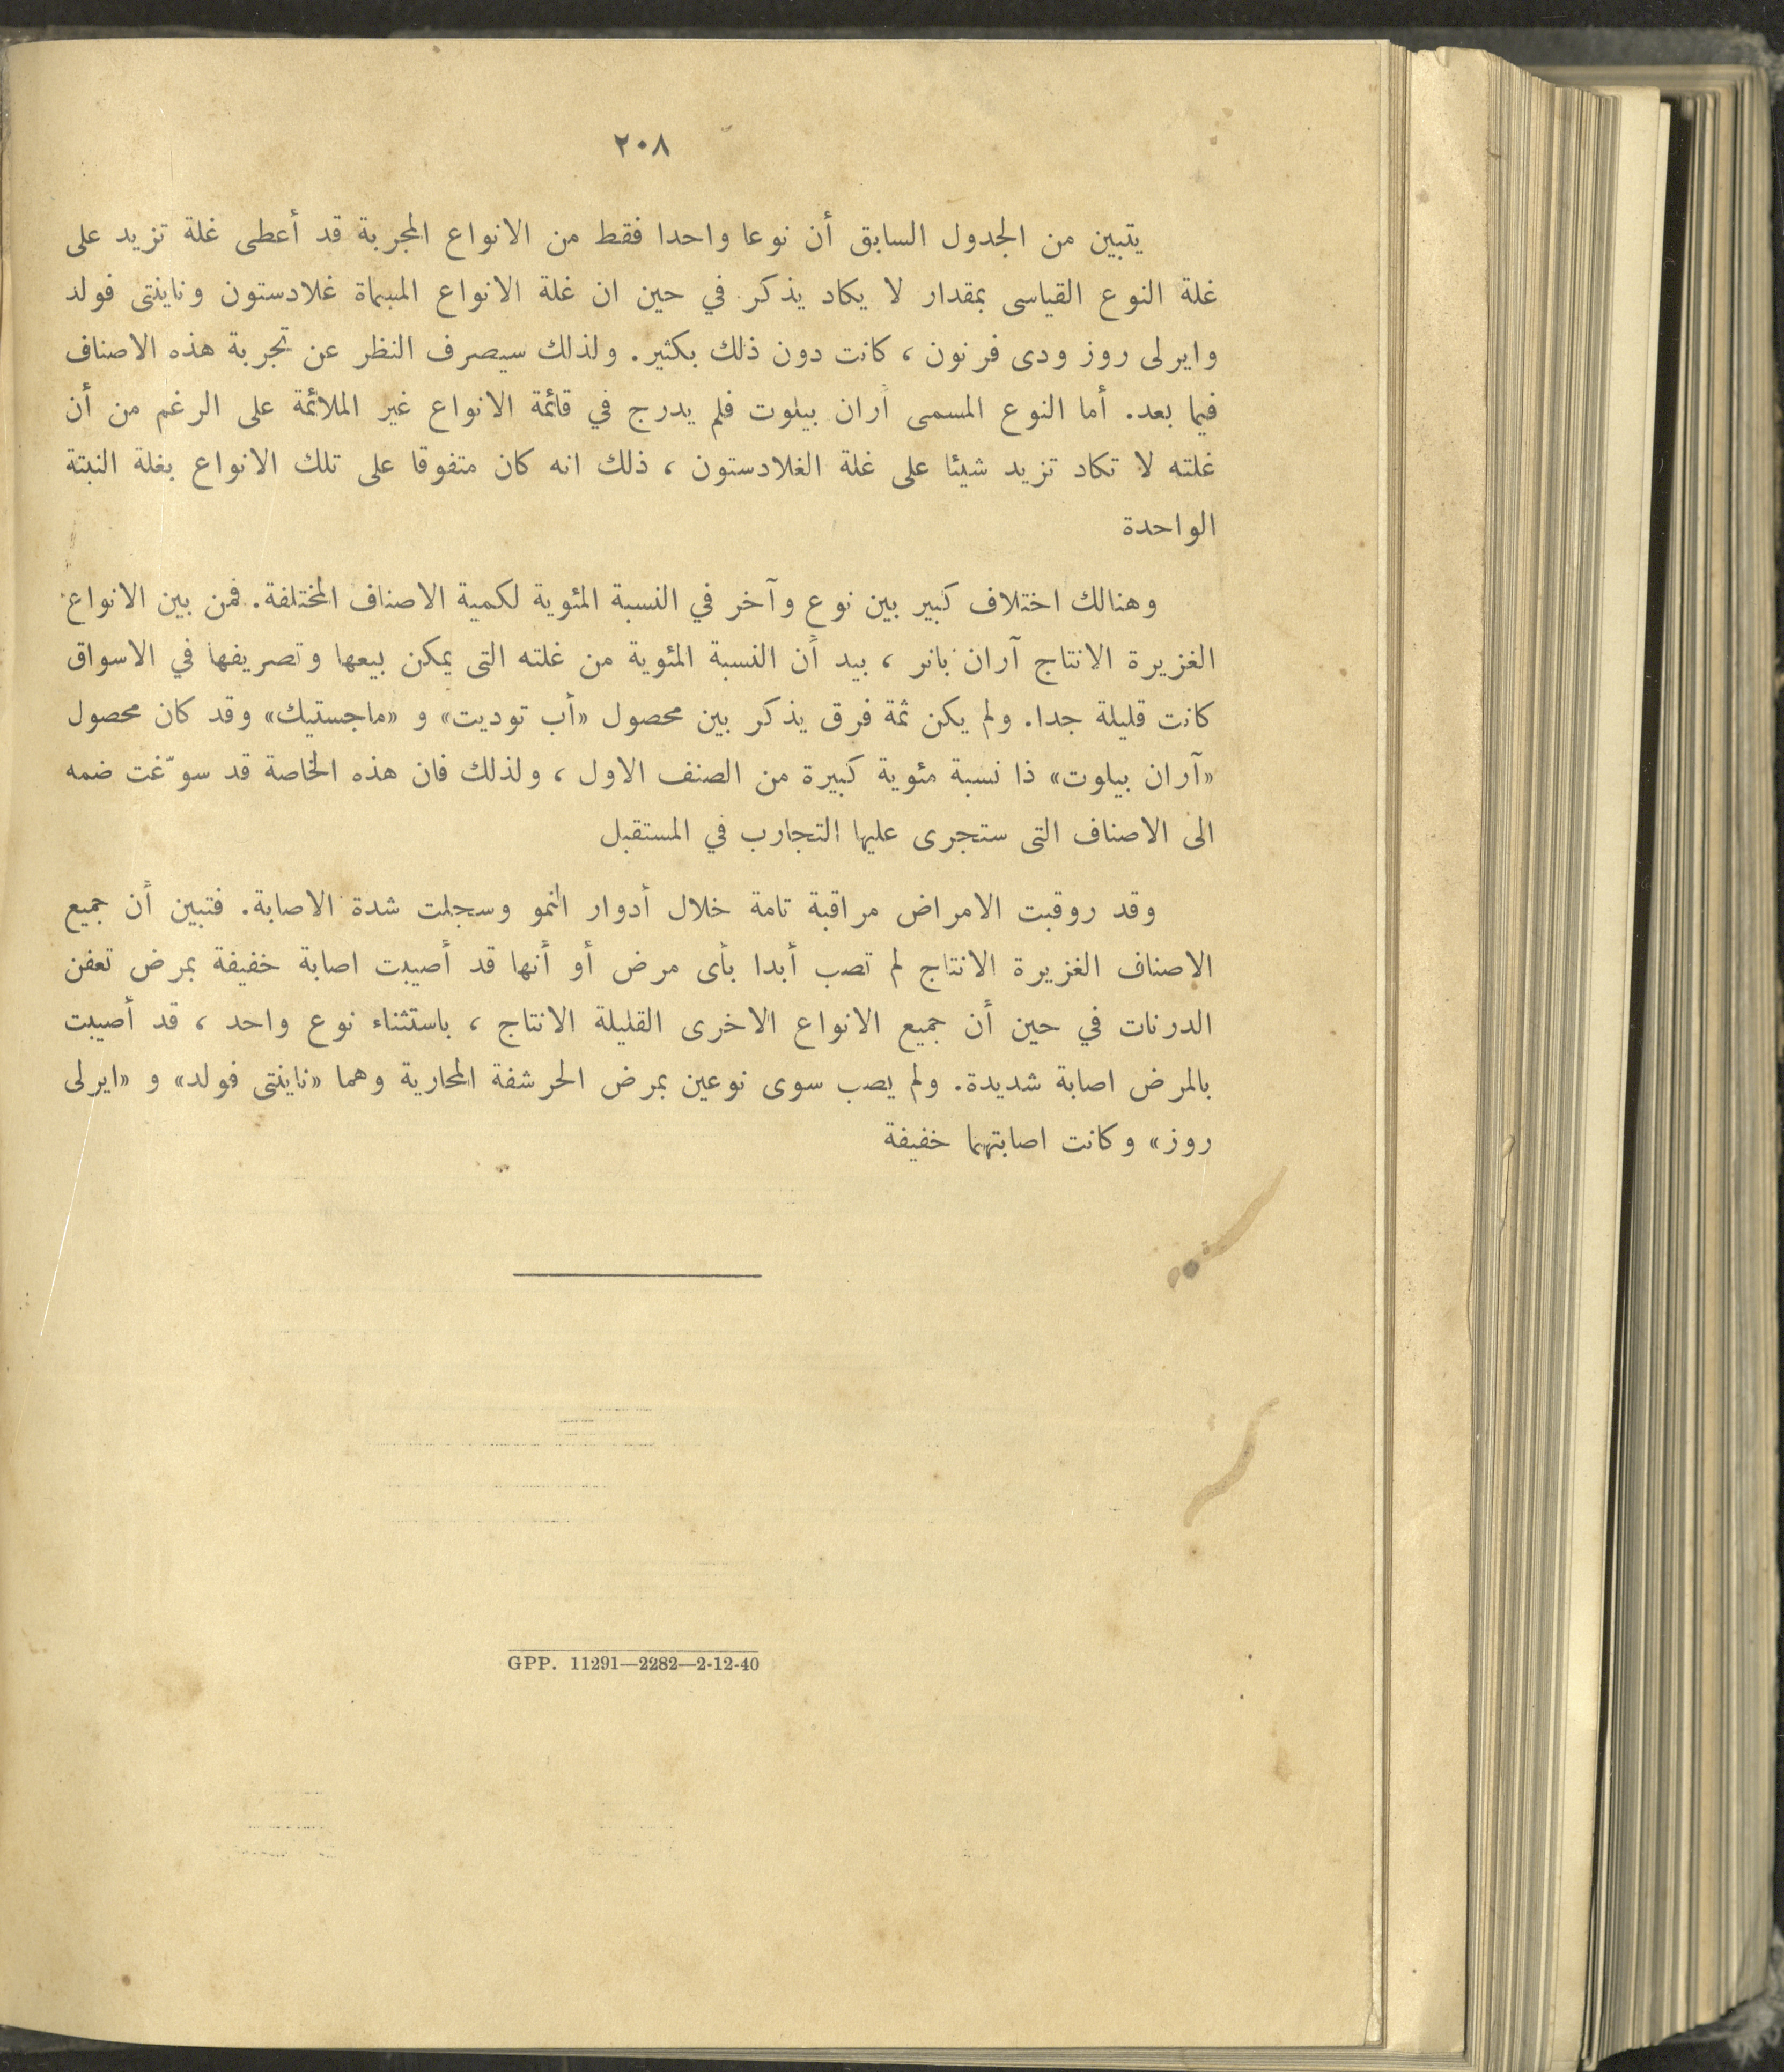 ٢٠٨
يتبين من الجدول السابق أن نوعا واحدا فقط من الانواع المجربة قد أعطى غلة تزيد على
غلة النوع القياسى بمقدار لا يكاد يذكر في حين ان غلة الانواع المسماة غلادستون وناينتى فولد
وايرلى روز ودى فرنون ، كانت دون ذلك بكثير. ولذلك سيصرف النظر عن تجربة هذه الاصناف
فيما بعد. أما النوع المسمى أران بيلوت فلم يدرج في قائمة الانواع غير الملائمة على الرغم من أن
غلته لا تكاد تزيد شيئا على غلة الغلادستون ، ذلك انه كان متفوقا على تلك الانواع بغلة النبتة
الواحدة
وهنالك اختلاف كبير بين نوع وآخر في النسبة المئوية لكمية الاصناف المختلفة. فمن بين الانواع
الغزيرة الانتاج آران بانر ، بيد أن النسبة المئوية من غلته التى يمكن بيعها وتصريفها في الاسواق
كانت قليلة جدا. ولم يكن ثمة فرق يذكر بين محصول «أب توديت» و «ماجستيك» وقد كان محصول
«آران بيلوت» ذا نسبة مئوية كبيرة من الصنف الاول ، ولذلك فان هذه الخاصة قد سوّغت ضمه
الى الاصناف التى ستجرى عليها التجارب في المستقبل
وقد روقبت الامراض مراقبة تامة خلال أدوار النمو وسجلت شدة الاصابة. فتبين أن جميع
الاصناف الغزيرة الانتاج لم تصب أبدا بأى مرض أو أنها قد أصيبت اصابة خفيفة بمرض تعفن
الدرنات في حين أن جميع الانواع الاخرى القليلة الانتاج ، باستثناء نوع واحد ، قد أصيبت
بالمرض اصابة شديدة. ولم يصب سوى نوعين بمرض الحرشفة المحارية وهما «ناينتى فولد» و «ايرلى
روز» وكانت اصابتهما خفيفة
GPP. 11291—2282—2-12-40